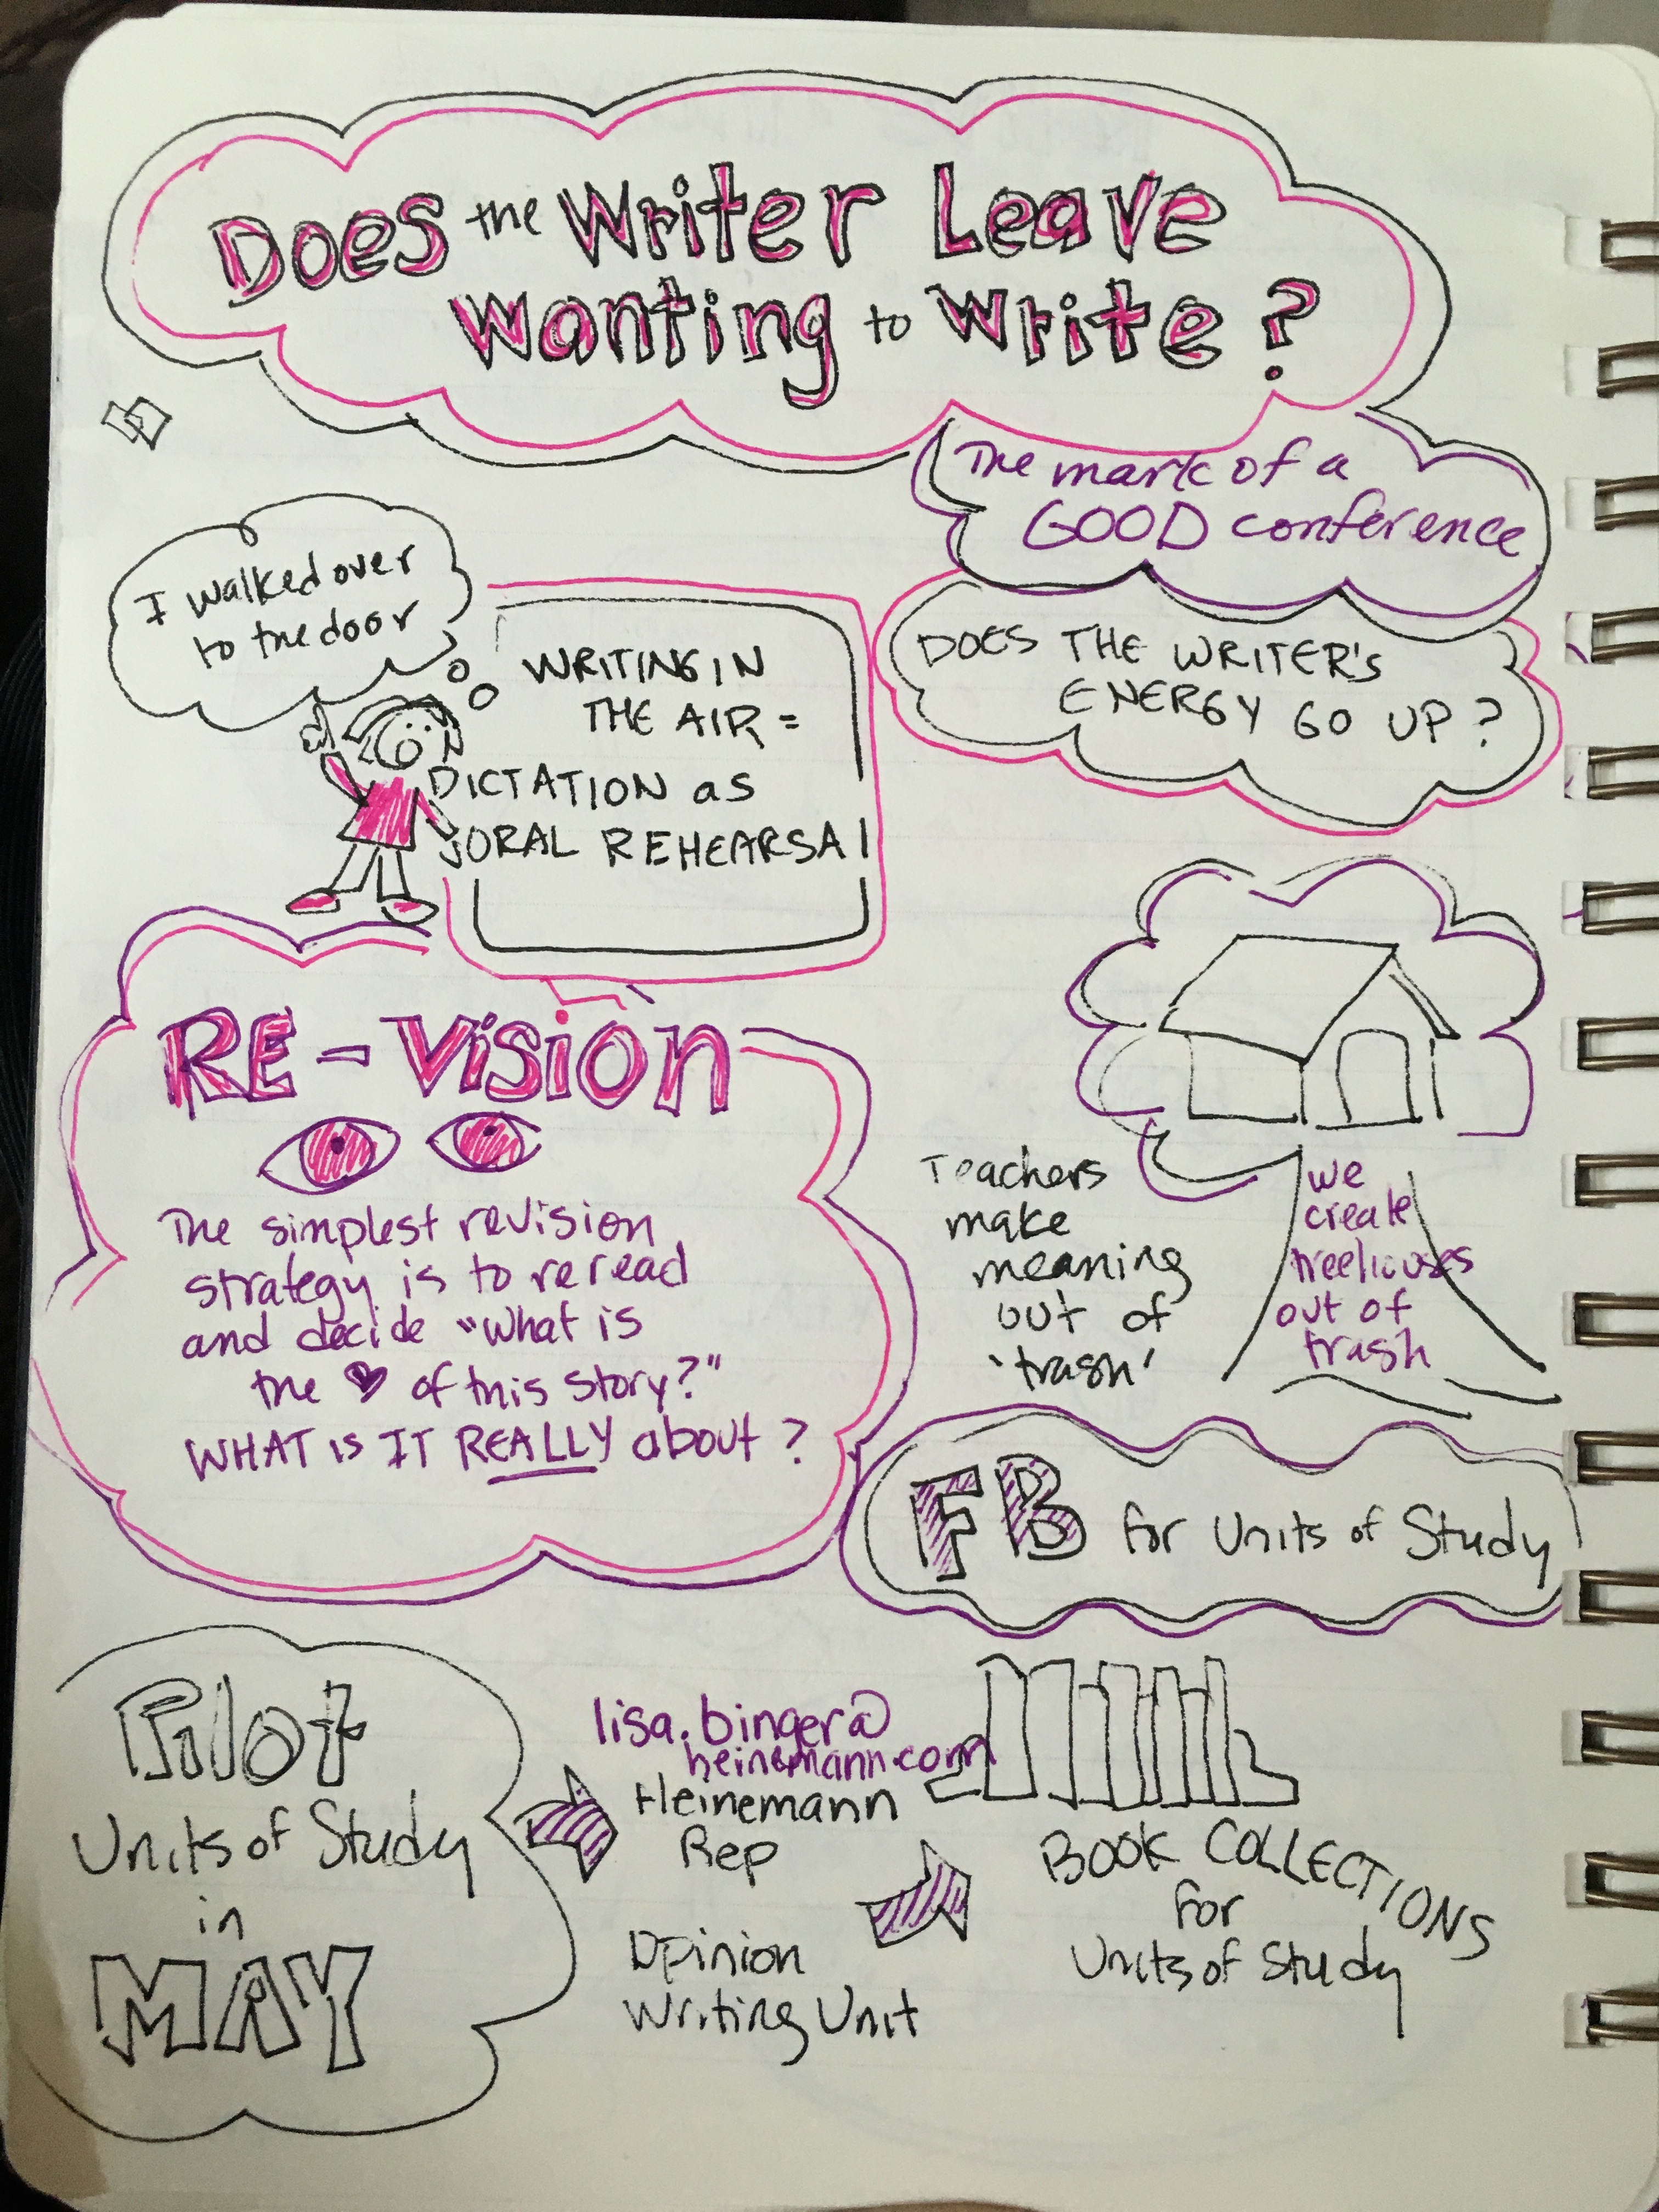 Does the Writer Leave
Wanting to Write?
The mark of a
GOOD conference
I walked over
to the door
WRITING IN
THE AIR =
DICTATION as
ORAL REHEARSAl
DOES THE WRITER'S
ENERGY GO UP?
RE-Vision
The simplest revision
strategy is to reread
and decide "what is
the ♥ of this story?"
WHAT IS IT REALLY about?
Teachers
make
meaning
out of
'trash'
we
create
treehouses
out of
trash
FB for Units of Study
Pilot
Units of Study
in
MAY
lisa.binger@
heinemann.com
Heinemann
Rep
Opinion
Writing Unit
BOOK COLLECTIONS
for
Units of Study